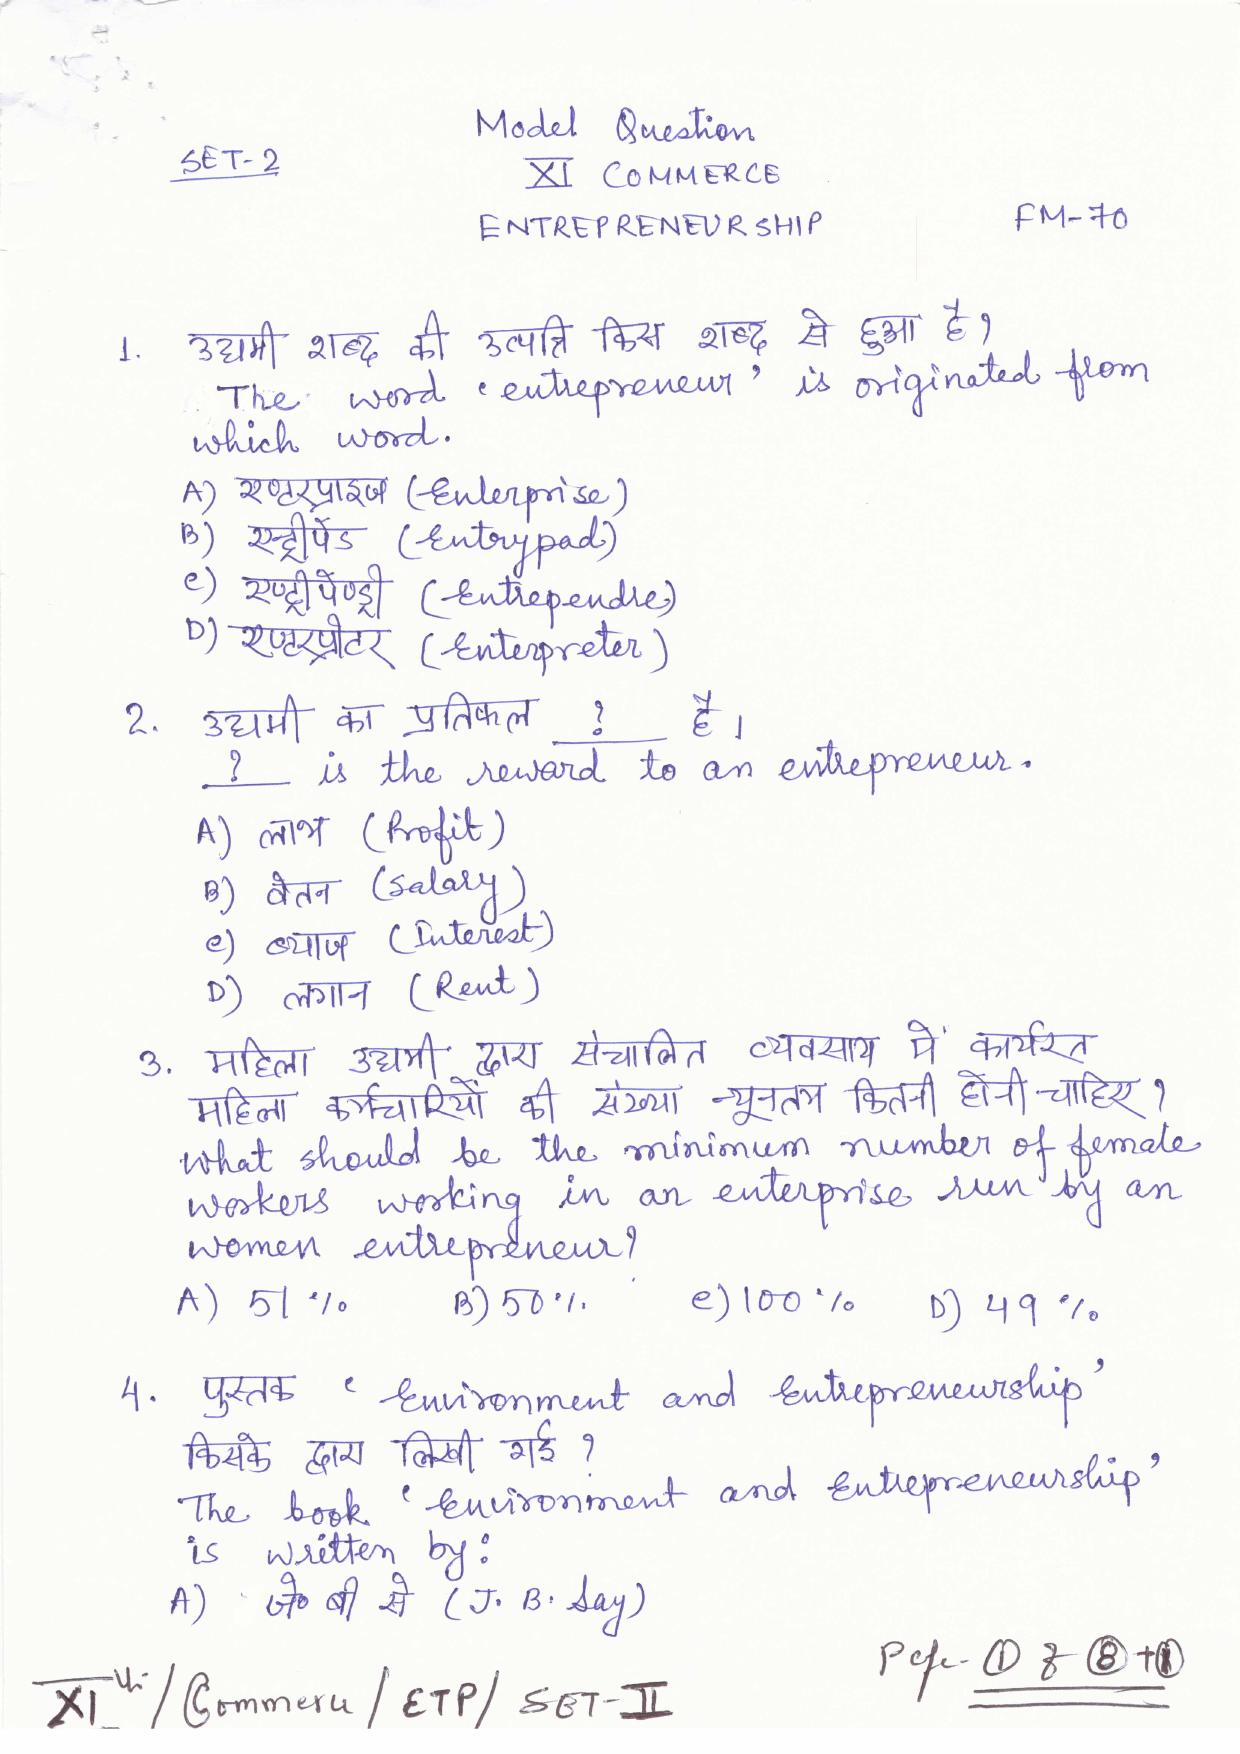 Model Question
SET-2
XI COMMERCE
ENTREPRENEURSHIP
FM-70
1. उद्यमी शब्द की उत्पत्ति किस शब्द से हुआ है?
The word 'entrepreneur' is originated from
which word.
A) एण्टरप्राइज (Enterprise)
B) एन्ट्रीपेड (Entrypad)
C) एण्ट्रीपेण्ड्री (Entrependre)
D) एण्टरप्रीटर (Enterpreter)
2. उद्यमी का प्रतिफल ? है।
? is the reward to an entrepreneur.
A) लाभ (Profit)
B) वेतन (Salary)
C) ब्याज (Interest)
D) लगान (Rent)
3. महिला उद्यमी द्वारा संचालित व्यवसाय में कार्यरत
महिला कर्मचारियों की संख्या न्यूनतम कितनी होनी चाहिए?
What should be the minimum number of female
workers working in an enterprise run by an
women entrepreneur?
A) 51% B) 50% C) 100% D) 49%
4. पुस्तक 'Environment and Entrepreneurship'
किसके द्वारा लिखी गई?
The book 'Environment and Entrepreneurship'
is written by:
A) जे० बी से (J. B. Say)
Page - 1 of 8+1
XIth / Commerce / ETP / SET-II